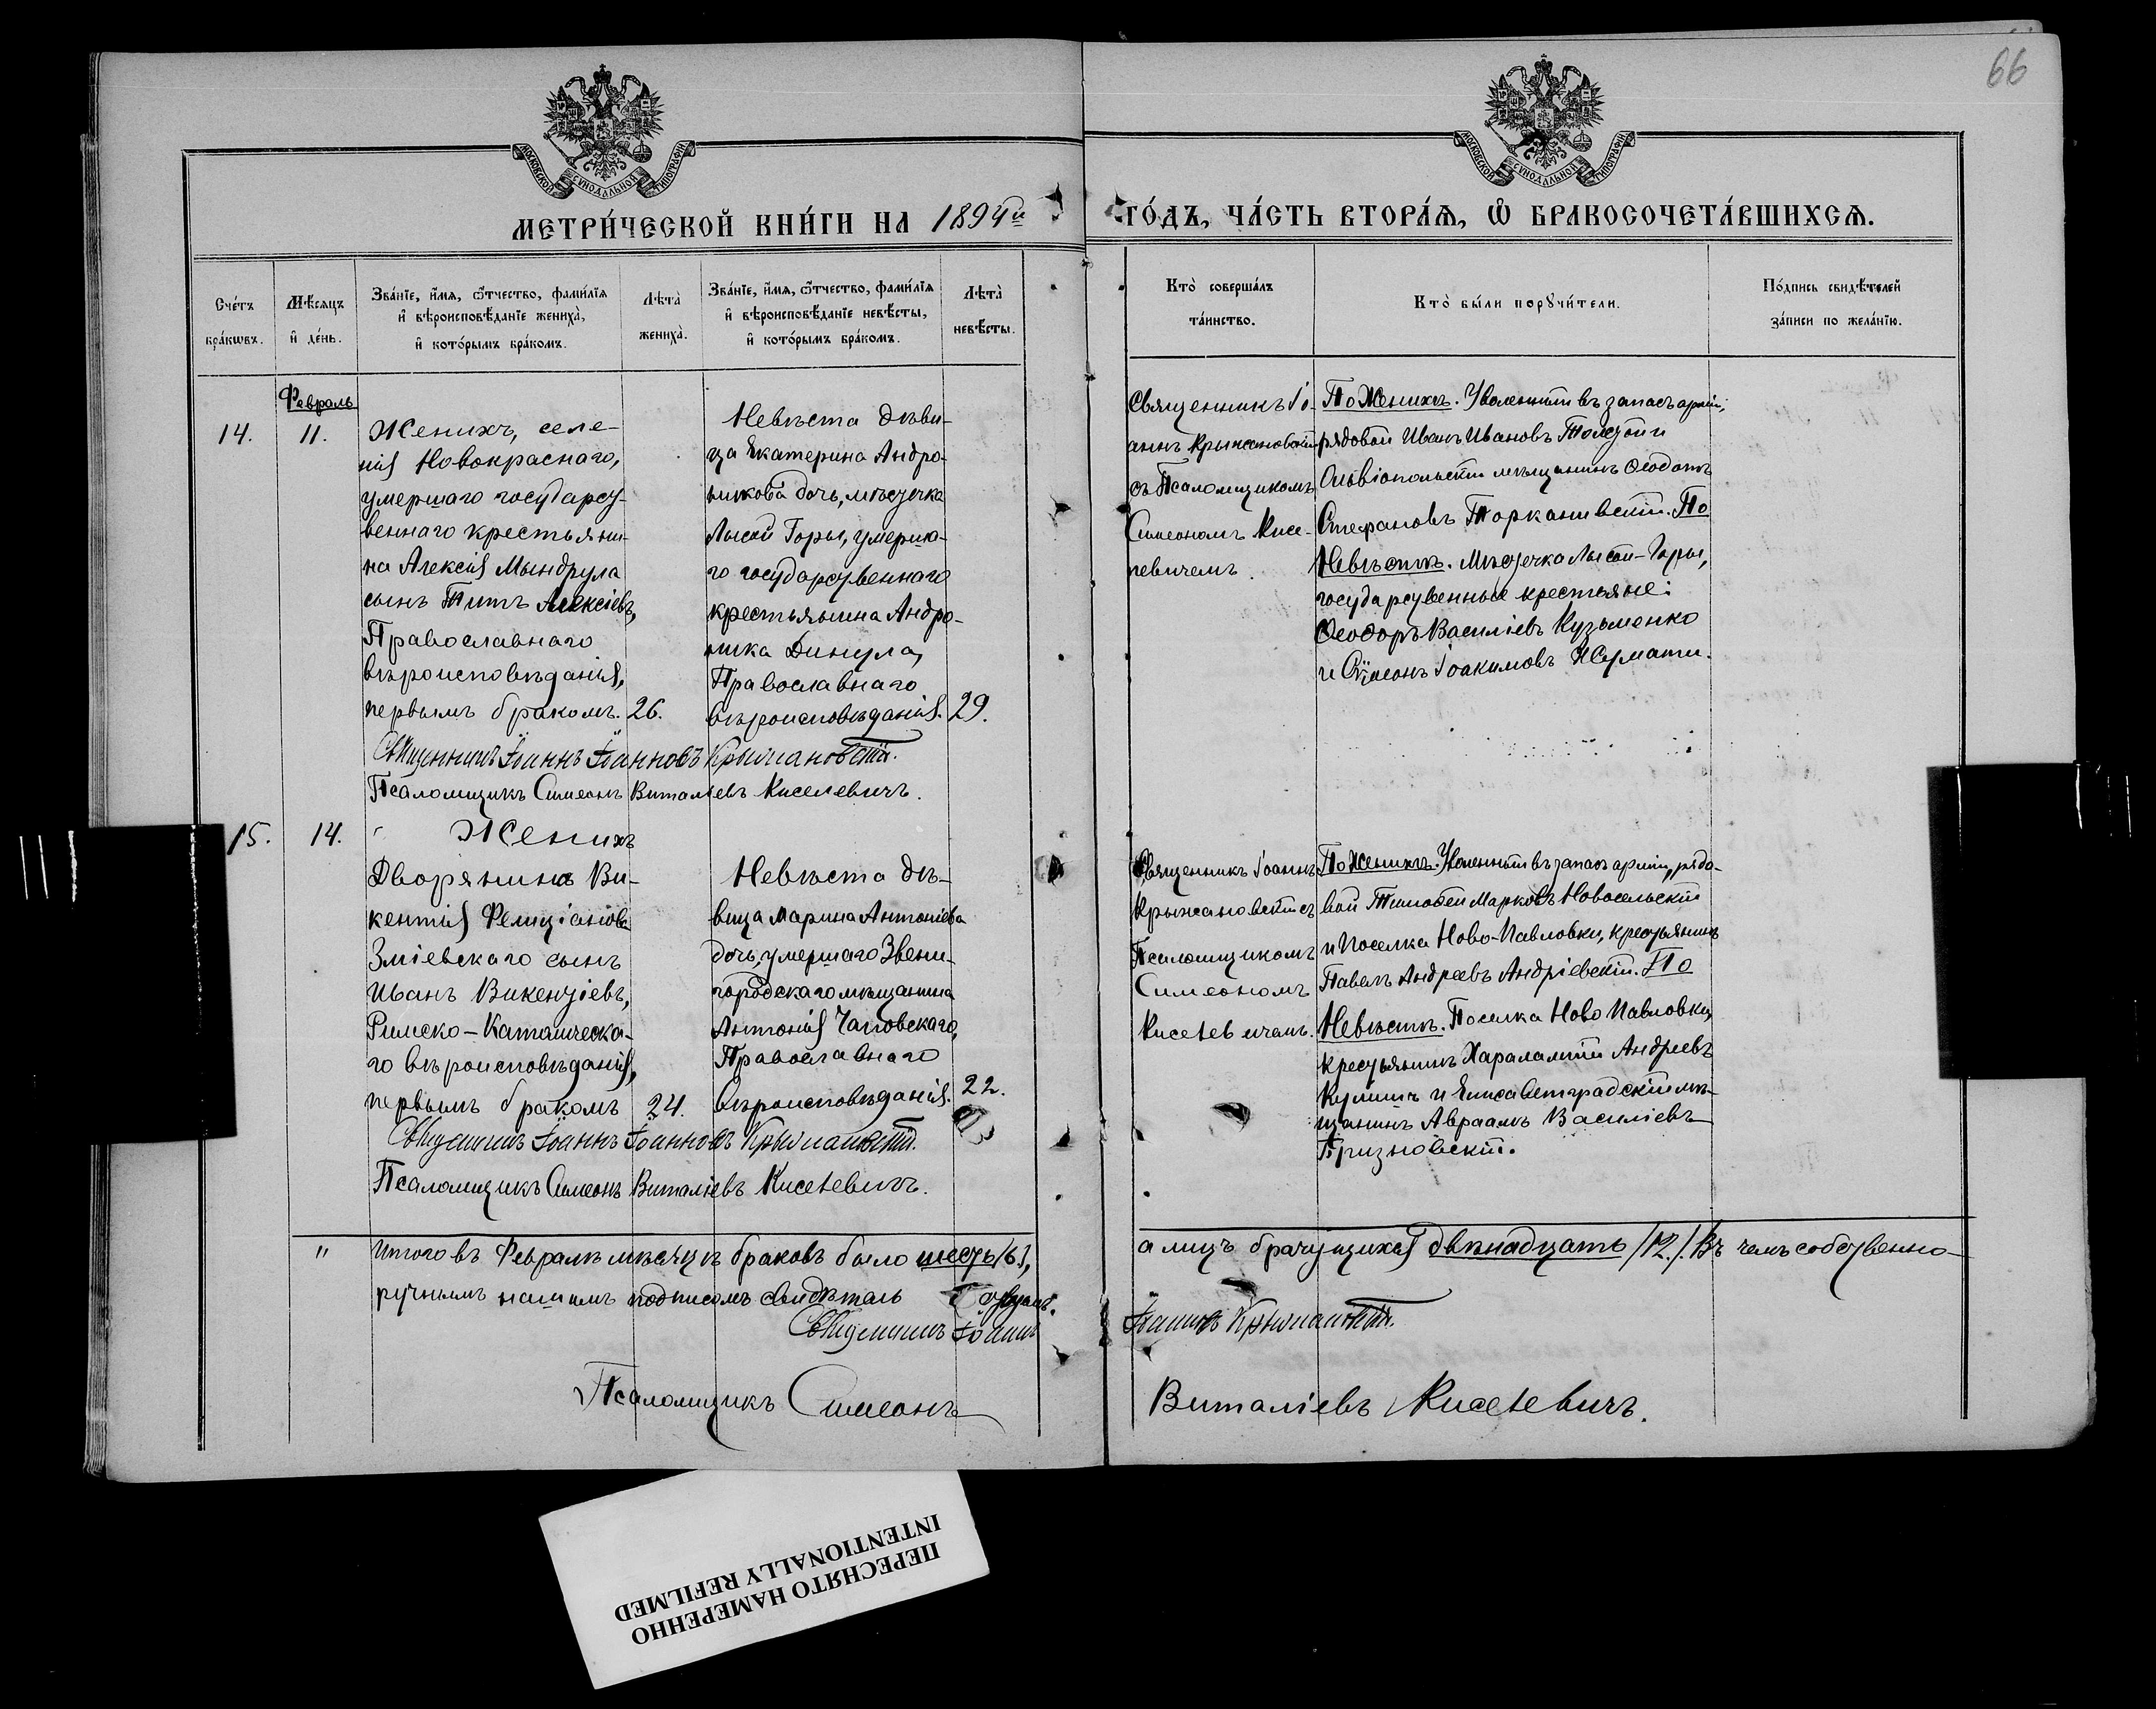 66
МОСКОВСКОЙ СѴНОДАЛЬНОЙ ТИПОГРАФІИ
МОСКОВСКОЙ СѴНОДАЛЬНОЙ ТИПОГРАФІИ
МЕТРИ́ЧЕСКОЙ КНИ́ГИ НА 1894й ГО́ДЪ, ЧА́СТЬ ВТОРА́Ѧ, Ѿ БРАКОСОЧЕТА́ВШИХСѦ.
Сче́тъ бра́кѡвъ.
Мѣ́сяцъ и҆ де́нь.
Зва́нїе, и҆́мя, ѻ҆́тчество, фами́лїя
и҆ вѣроисповѣ́данїе жениха̀,
и҆ кото́рымъ бра́комъ.
Лѣта̀ жениха̀.
Зва́нїе, и҆́мя, ѻ҆́тчество, фами́лїя
и҆ вѣроисповѣ́данїе невѣ́сты,
и҆ кото́рымъ бра́комъ.
Лѣта̀ невѣ́сты.
Кто̀ соверша́лъ
та́инство.
Кто̀ бы́ли порꙋчи́тели.
По́дпись свидѣ́телей
за́писи по жела́нїю.
Февраль
14.
11.
Женихъ, селе-
нія Новокраснаго,
умершаго государст-
веннаго крестьяни-
на Алексія Мындрула
сынъ Титъ Алексіевъ,
Православнаго
вѣроисповѣданія,
первымъ бракомъ.
26.
Невѣста дѣви-
ца Екатерина Андро-
никова дочь, мѣстечка
Лысой Горы, умерша-
го государственнаго
крестьянина Андро-
ника Динула,
Православнаго
вѣроисповѣданія.
29.
Священникъ Іо-
аннъ Крыжановскій
съ Псаломщикомъ
Симеономъ Кисе-
левичемъ.
По Женихѣ. Уволенный въ запасъ арміи,
рядовой Иванъ Ивановъ Толстой и
Ольвіопольскій мѣщанинъ Ѳеодотъ
Стефановъ Торканивскій. По
Невѣстѣ. Мѣстечка Лысой-Горы,
государственные крестьяне:
Ѳеодоръ Василіевъ Кузьменко
и Сѵмеонъ Іоакимовъ
Священникъ Іоаннъ Іоанновъ Крыжановскій.
Псаломщикъ Симеонъ Виталіевъ Киселевичъ.
15.
14.
Женихъ
Дворянина Ви-
кентія Фелиціанова
Зміевскаго сынъ
Иванъ Викентіевъ,
Римско-Католическа-
го вѣроисповѣданія,
первымъ бракомъ
24.
Невѣста дѣ-
вица Марина Антоніева
дочь, умершаго Звени-
городскаго мѣщанина
Антонія Чаповскаго,
Православнаго
Вѣроисповѣданія.
22.
Священникъ Іоаннъ
Крыжановскій съ
Псаломщикомъ
Симеономъ
Киселевичемъ.
По Женихѣ. Уволенный въ запасъ арміи, рядо-
вой Тимофей Марковъ Новосельскій
и Поселка Ново-Павловки, крестьянинъ
Павелъ Андреевъ Андріевскій. По
Невѣстѣ. Поселка Ново Павловки,
крестьянинъ Харалампій Андреевъ
Кулишъ и Елисаветградскій мѣ-
щанинъ Авраамъ Василіевъ
Гризновскій.
Священникъ Іоаннъ Іоанновъ Крыжановскій.
Псаломщикъ Симеонъ Виталіевъ Киселевичъ.
" Итого въ Февралѣ мѣсяцѣ браковъ было шесть /6/, а лицъ брачущихся двѣнадцать /12./. Въ чемъ собственно-
ручнымъ нашимъ подписомъ свидѣтель
Священникъ Іоаннъ Іоанновъ Крыжановскій.
Псаломщикъ Симеонъ Виталіевъ Киселевичъ.
ПЕРЕСНЯТО НАМЕРЕННО
INTENTIONALLY REFILMED